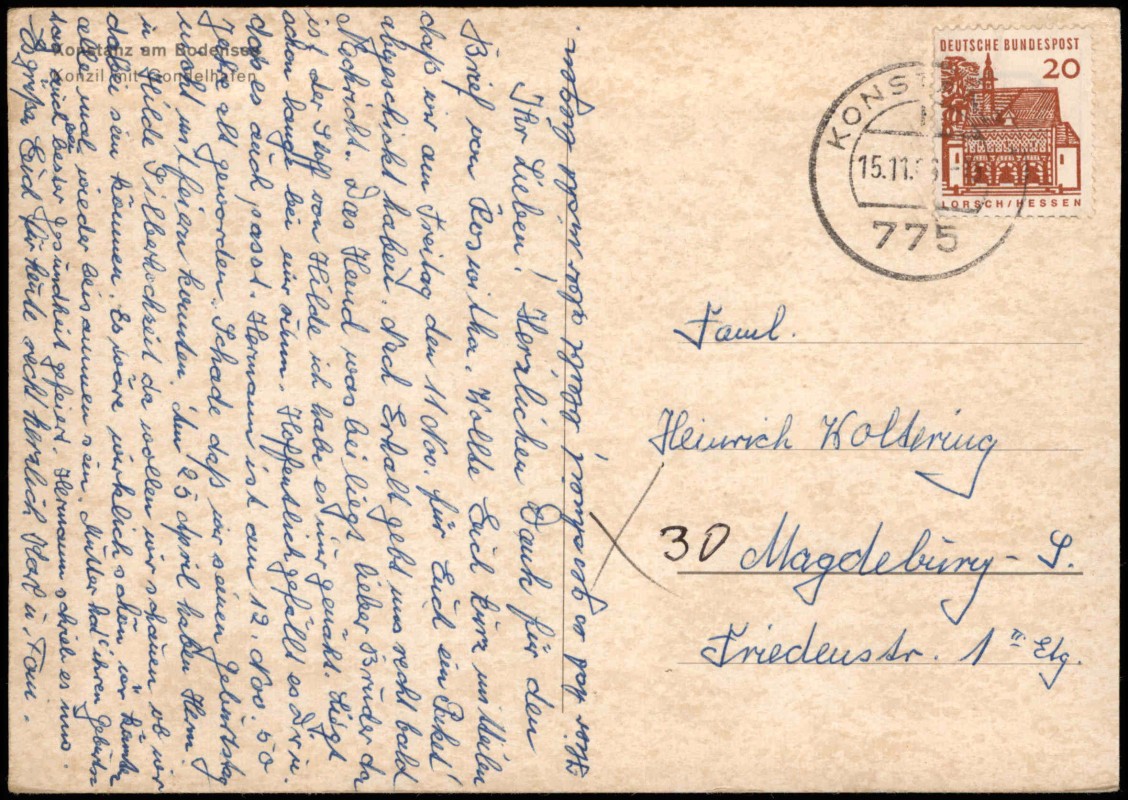 Konstanz am Bodensee
Konzil mit Gondelhafen
Ihr Lieben! Herzlichen Dank für den
Brief von Roswitha. Wollte Euch kurz mitteilen
daß wir am Freitag den 11 Nov. für Euch ein Paket
abgeschickt haben. Nach Erhalt gebt uns recht bald
Nachricht. Das Hemd was bei liegt lieber Bruder da
ist der Stoff von Hilde ich habe es nur genäht. Liegt
schon lange bei mir rum. Hoffentlich gefällt es Dir u.
daß es auch passt. Hermann ist am 12. Nov. 50
Jahre alt geworden. Schade daß wir seinen Geburtstag
nicht mit feiern konnten. Am 25 April haben Herm.
u. Hilde Silberhochzeit da wollen wir schauen ob wir
dabei sein können. Es wäre wirklich schön wir könnten
alle mal wieder beisammen sein. Mutter hat ihren Geburts
tag auch bei bester Gesundheit gefeiert. Hermann schrieb es uns.
Es grüßen Euch für heute recht herzlich Karl u. Fam.
DEUTSCHE BUNDESPOST
20
LORSCH/HESSEN
KONST
15.11.
775
Faml.
Heinrich Woltering
30 Magdeburg-S.
Friedenstr. 1 II Etg.